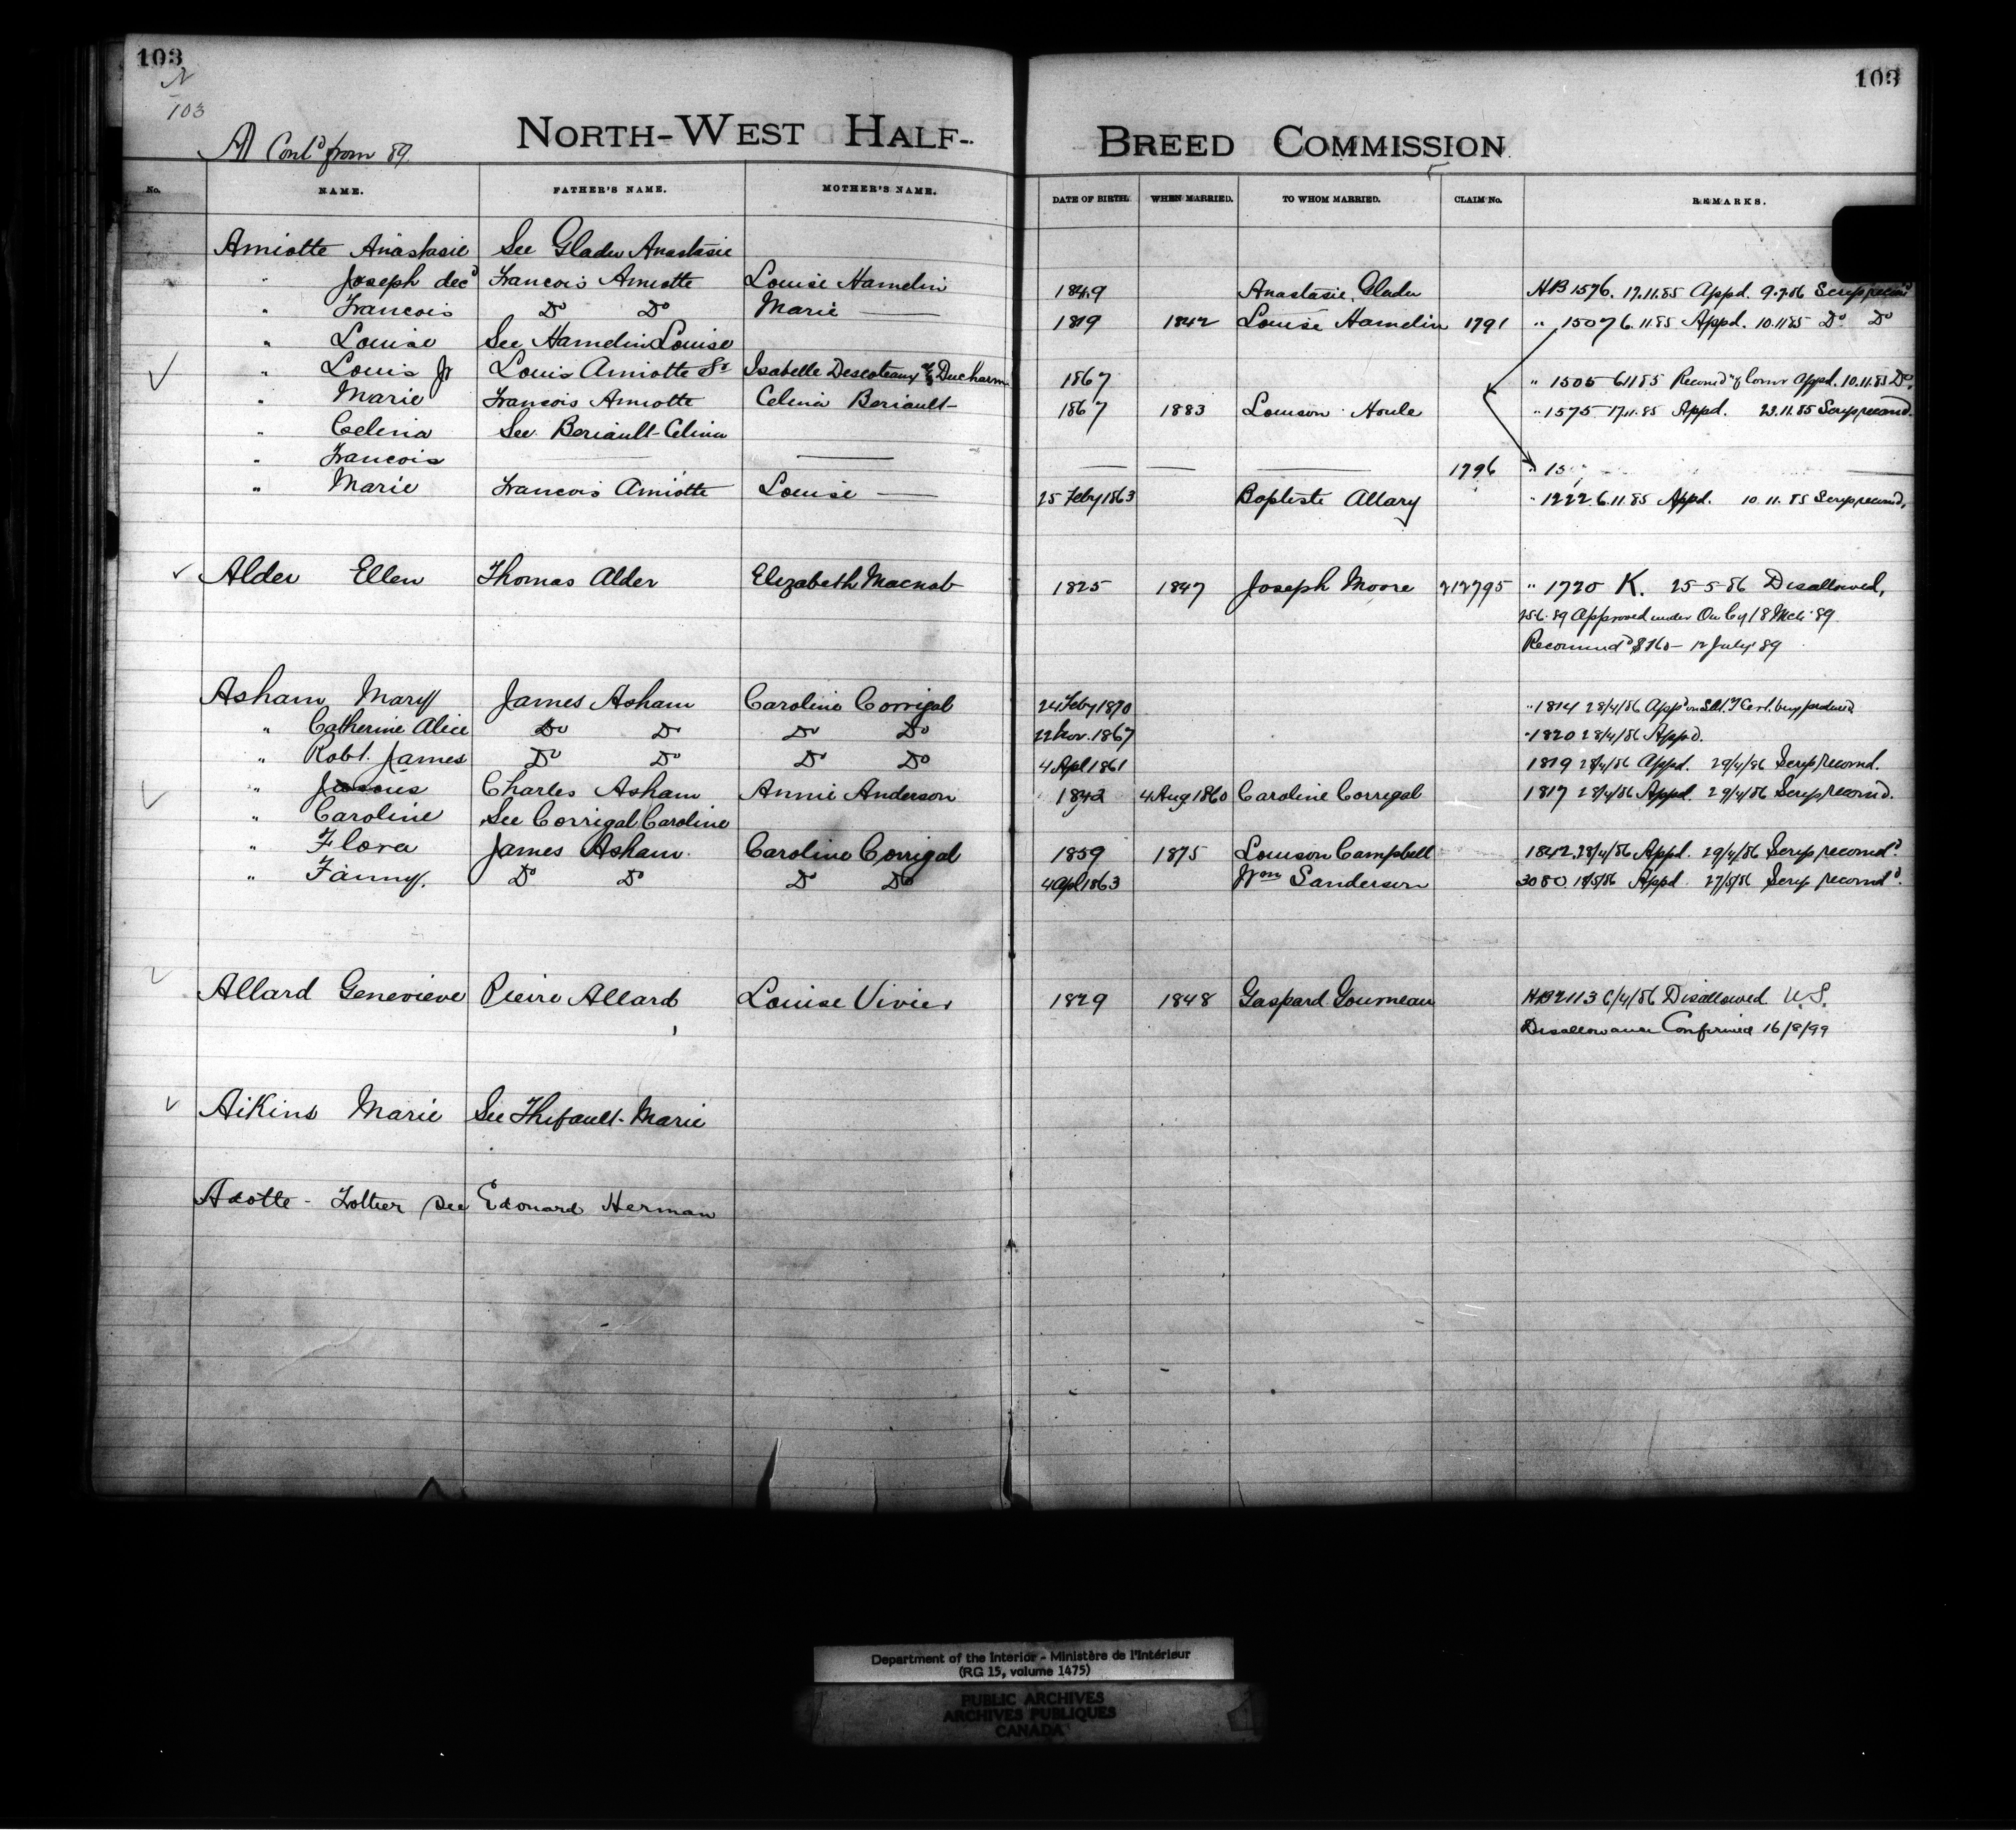 103
103
N
103
A Contd from 89.
NORTH-WEST HALF-BREED COMMISSION
No. NAME. FATHER'S NAME. MOTHER'S NAME. DATE OF BIRTH. WHEN MARRIED. TO WHOM MARRIED. CLAIM No. REMARKS.
Amiotte Anastasie See Gladu Anastasie
" Joseph decd Francois Amiotte Louise Hamelin 1849 Anastasie Gladu HB 1576. 17.11.85 Appd. 9.7.86 Scrip recomd
" Francois Do Do Marie — 1819 1842 Louise Hamelin 1791 " 1507 6.11.85 Appd. 10.11.85 Do Do
" Louise See Hamelin Louise
" Louis Jr Louis Amiotte Sr Isabelle Descoteaux Ducharm 1867 " 1505 6.11.85 Appd. 10.11.85 Do
" Marie Francois Amiotte Celina Beriault 1867 1883 Louison Houle " 1575 17.11.85 Appd. 23.11.85 Scrip recomd.
" Celina See Beriault Celina
" Francois — — — — — 1796 " 15
" Marie Francois Amiotte Louise — 25 Feby 1863 Baptiste Allary " 1222. 6.11.85 Appd. 10.11.85 Scrip recomd,
Alder Ellen Thomas Alder Elizabeth Macnab 1825 1847 Joseph Moore 212795 " 1720 K. 25-5-86 Disallowed,
25.6.89 Approved under 18 Mch 89
Recommd $160 — 12 July 89
Asham Mary James Asham Caroline Corrigal 24 Feby 1870 " 1814 28/4/86 Appd Cert. being produced
" Catherine Alice Do Do Do Do 22 Nov. 1867 " 1820 28/4/86 Appd.
" Robt. James Do Do Do Do 4 Apl 1861 1819 28/4/86 Appd. 29/4/86 Scrip recomd.
" Charles Asham Annie Anderson 1842 4 Aug 1860 Caroline Corrigal 1817 28/4/86 Appd. 29/4/86 Scrip recomd.
" Caroline See Corrigal Caroline
" Flora James Asham Caroline Corrigal 1859 1875 Louison Campbell 1842. 28/4/86 Appd. 29/4/86 Scrip recomd.
" Fanny. Do Do Do Do 4 Apl 1863 Wm Sanderson 3080 18/5/86 Appd. 27/5/86 Scrip recomd.
Allard Genevieve Pierre Allard Louise Vivier 1829 1848 Gaspard Gourneau HB 2113 6/4/86 Disallowed U.S.
Disallowance Confirmed 16/8/99
Aikins Marie See Thifault Marie
Adotte - See Edouard Herman
Department of the Interior - Ministère de l'Intérieur
(RG 15, volume 1475)
PUBLIC ARCHIVES
ARCHIVES PUBLIQUES
CANADA